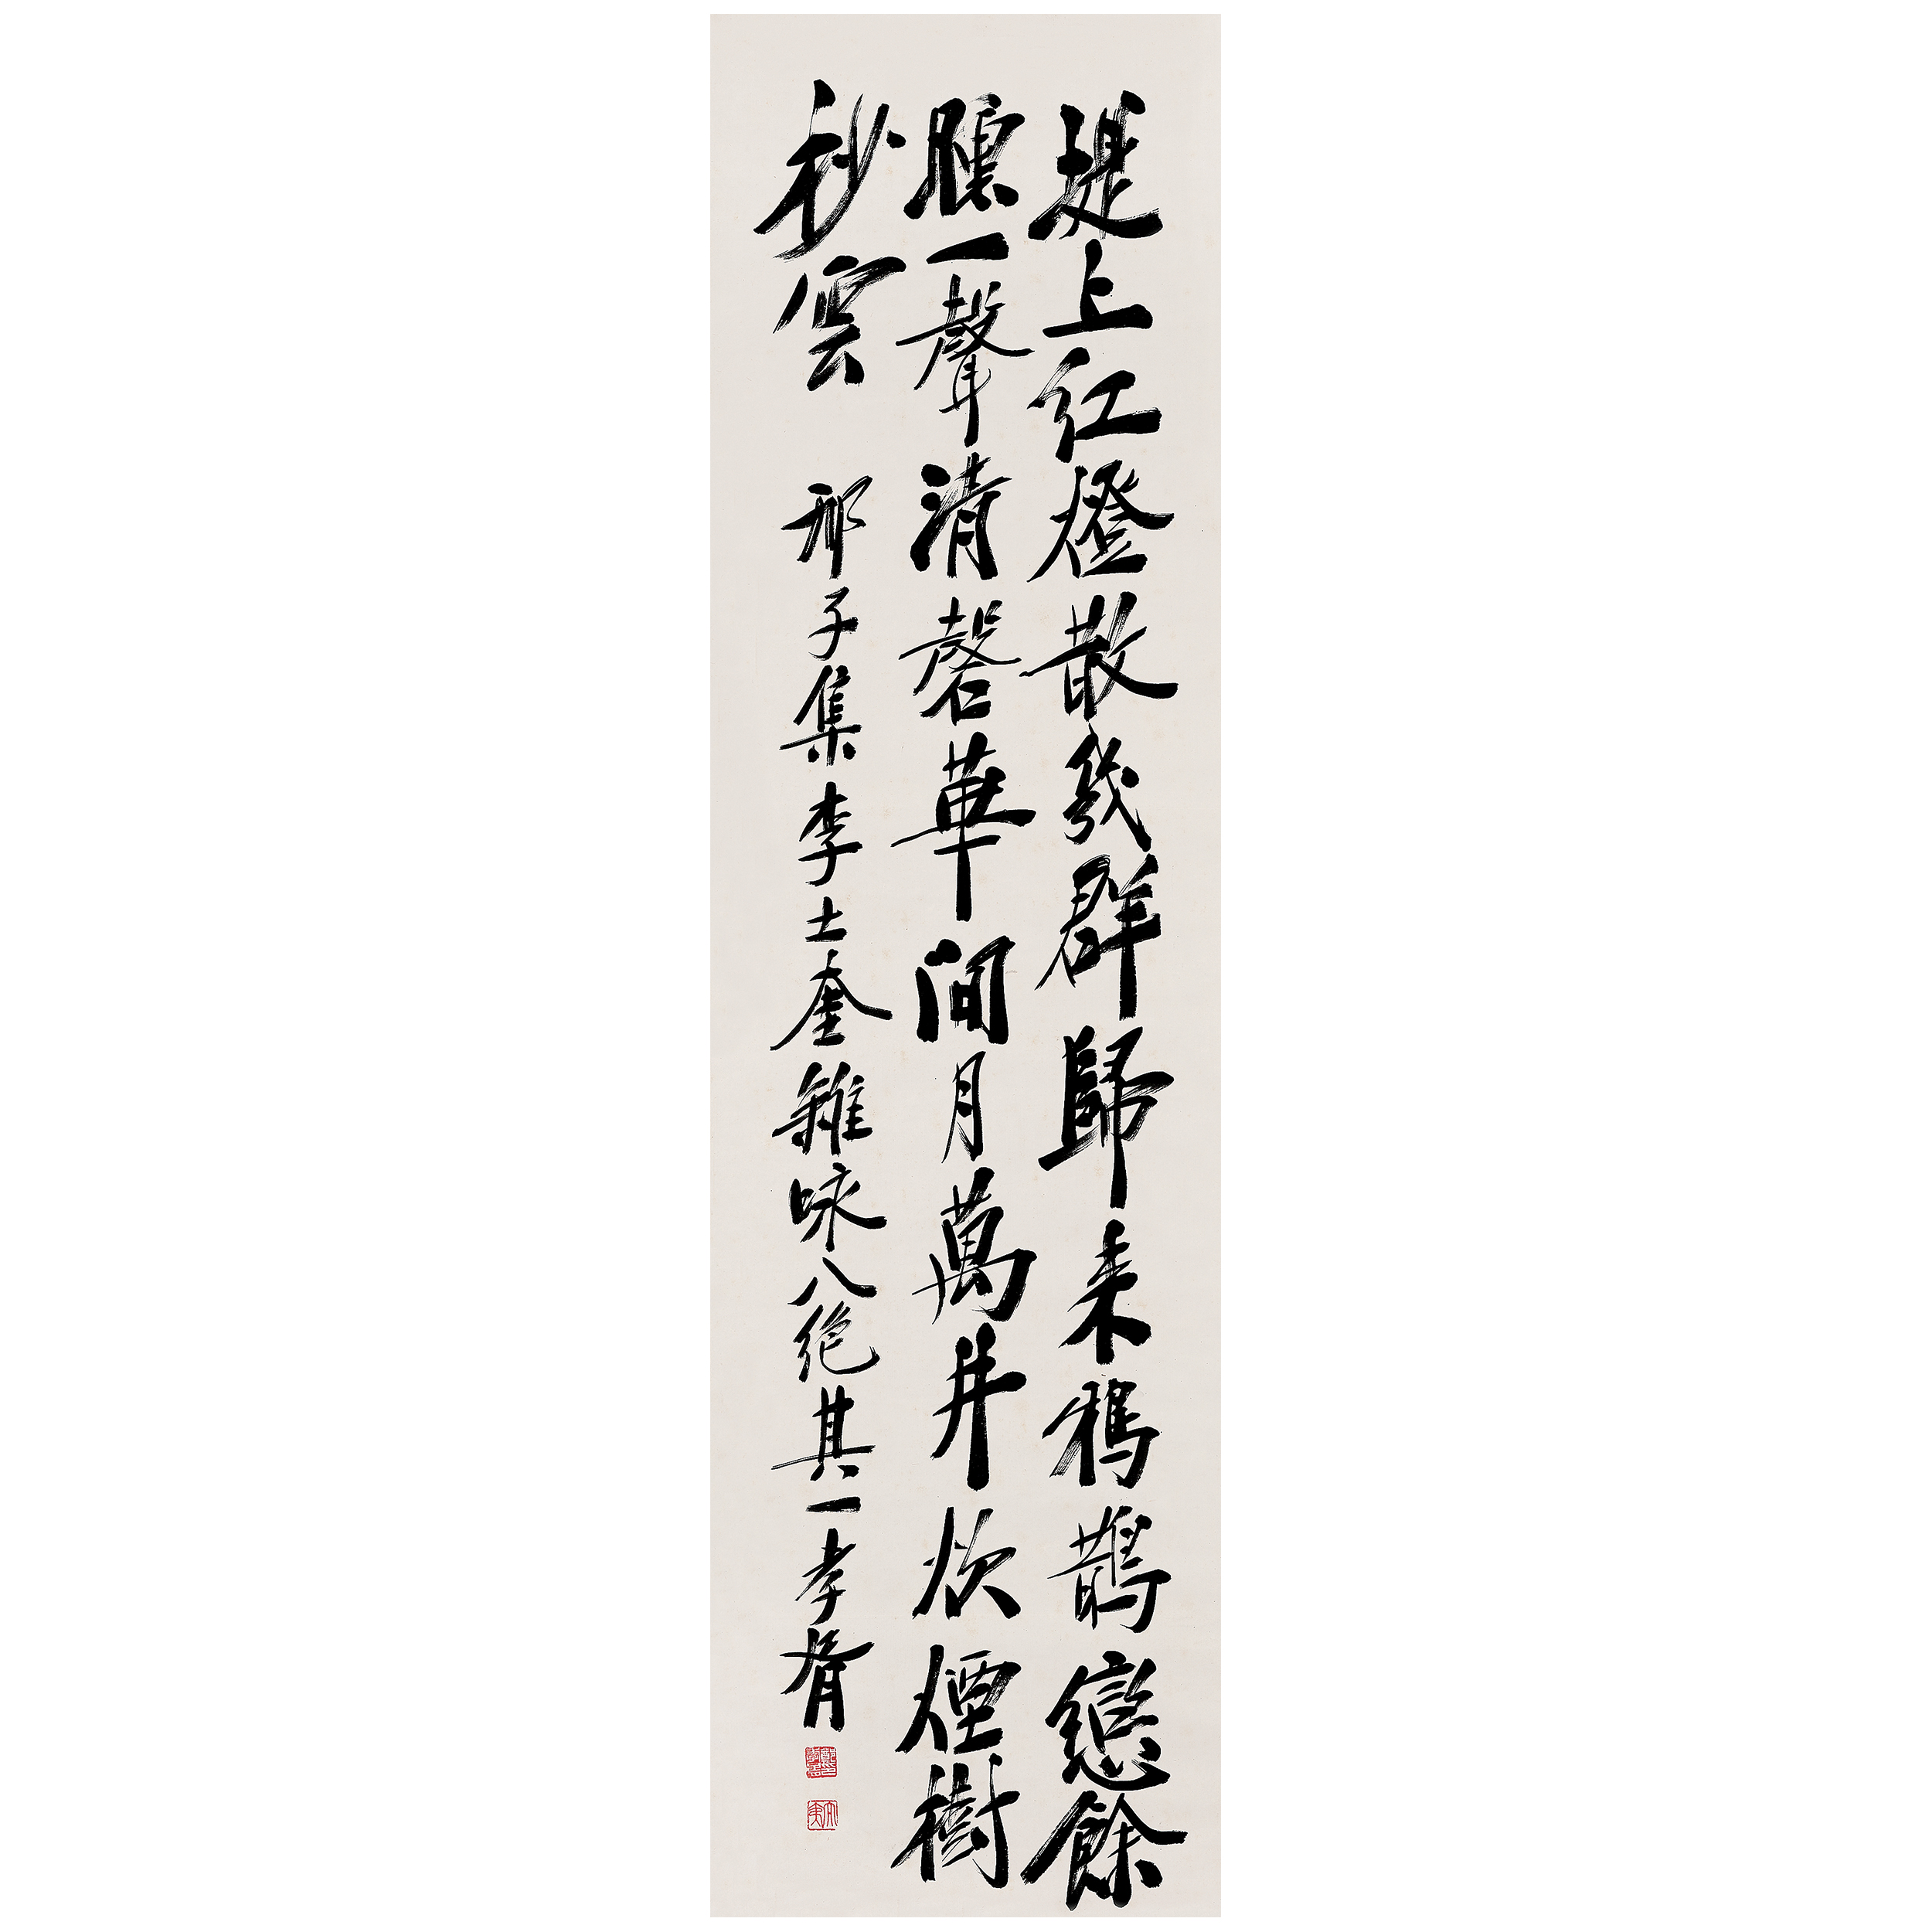 堤上紅燈散幾群歸来鴉鵲戀餘
醺一聲清磬華間月萬井炊煙樹
杪雲 邢子集李士奎雜咏八絕其一孝胥